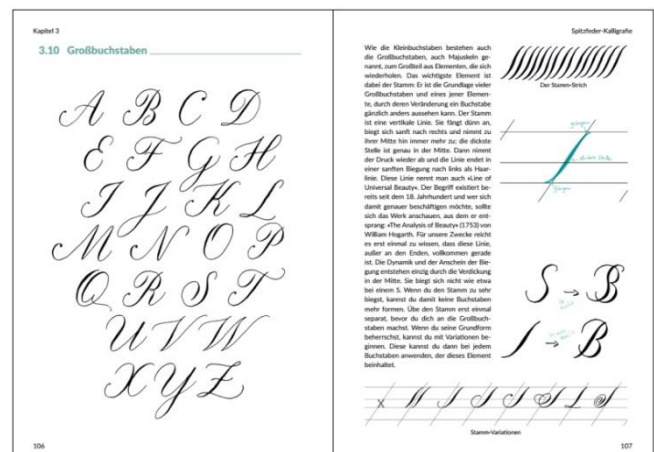 Kapitel 3
3.10 Großbuchstaben
A B C D
E F G H
I J K L
M N O P
Q R S T
U V W
X Y Z
106
Spitzfeder-Kalligrafie
Wie die Kleinbuchstaben bestehen auch
die Großbuchstaben, auch Majuskeln ge-
nannt, zum Großteil aus Elementen, die sich
wiederholen. Das wichtigste Element ist
dabei der Stamm: Er ist die Grundlage vieler
Großbuchstaben und eines jener Elemen-
te, durch deren Veränderung ein Buchstabe
gänzlich anders aussehen kann. Der Stamm
ist eine vertikale Linie. Sie fängt dünn an,
biegt sich sanft nach rechts und nimmt zu
ihrer Mitte hin immer mehr zu; die dickste
Stelle ist genau in der Mitte. Dann nimmt
der Druck wieder ab und die Linie endet in
einer sanften Biegung nach links als Haar-
linie. Diese Linie nennt man auch »Line of
Universal Beauty«. Der Begriff existiert be-
reits seit dem 18. Jahrhundert und wer sich
damit genauer beschäftigen möchte, sollte
sich das Werk anschauen, aus dem er ent-
sprang: »The Analysis of Beauty« (1753) von
William Hogarth. Für unsere Zwecke reicht
es erst einmal zu wissen, dass diese Linie,
außer an den Enden, vollkommen gerade
ist. Die Dynamik und der Anschein der Bie-
gung entstehen einzig durch die Verdickung
in der Mitte. Sie biegt sich nicht wie etwa
bei einem S. Wenn du den Stamm zu sehr
biegst, kannst du damit keine Buchstaben
mehr formen. Übe den Stamm erst einmal
separat, bevor du dich an die Großbuch-
staben machst. Wenn du seine Grundform
beherrschst, kannst du mit Variationen be-
ginnen. Diese kannst du dann bei jedem
Buchstaben anwenden, der dieses Element
beinhaltet.
Der Stamm-Strich
dickste Stelle
S → B
→ B
x
Stamm-Variationen
107